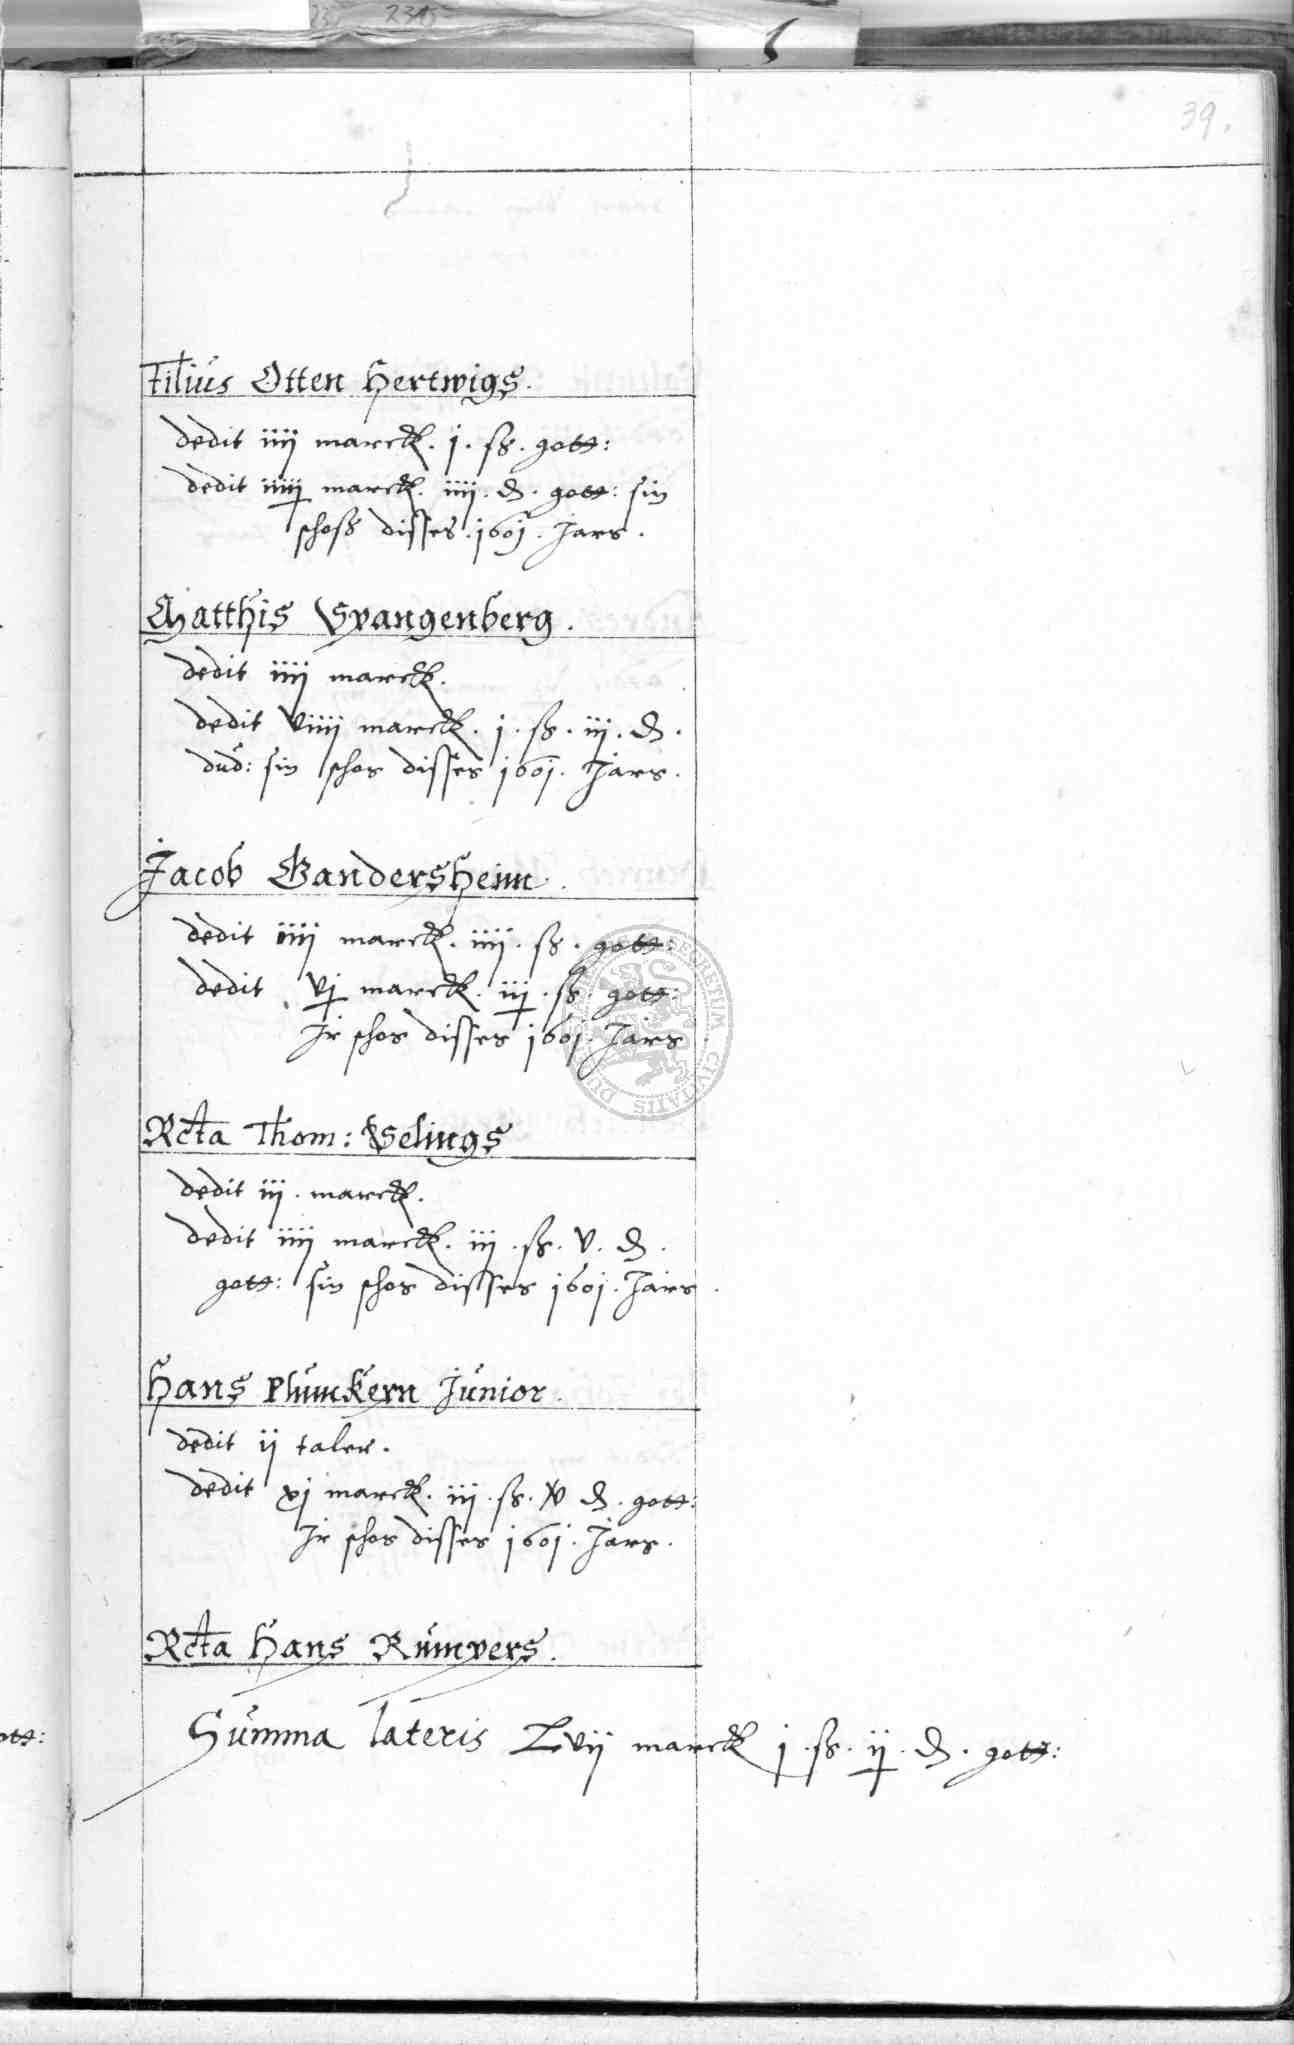 39.
Filius Otten Hertwigs.
dedit iiij marck. j. ß. gott:
dedit iiiij marck. iiij. ₰. gott: sin
schoß disses. 1601. Jars.
Matthis Spangenberg.
dedit iiij marck.
dedit viiij marck. j. ß. iij. ₰.
dud: sin schos disses 1601. Jars.
Jacob Gandersheim.
dedit iiij marck. iiij. ß. gott:
dedit vj marck. iij. ß. gott:
Jr schos disses 1601. Jars
Rcta Thom: Selings
dedit iij. marck.
dedit iiij marck. iij. ß. v. ₰.
gott: sin schos disses 1601. Jars.
Hans Plünckern Junior.
dedit ij taler.
dedit xj marck. iij. ß. v ₰. gott:
Jr schos disses 1601. Jars.
Rcta Hans Rumpers.
Summa lateris Lvij marck j. ß. ij. ₰. gott:
SECRETUM CIVITATIS